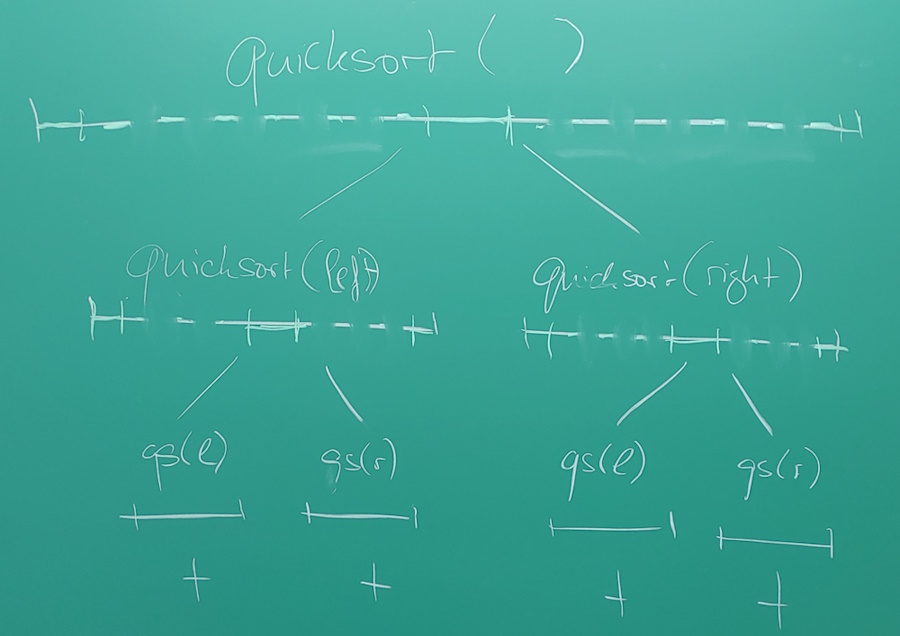 Quicksort ( )
Quicksort (left)
Quicksort (right)
qs(l)
qs(r)
qs(l)
qs(r)
+
+
+
+